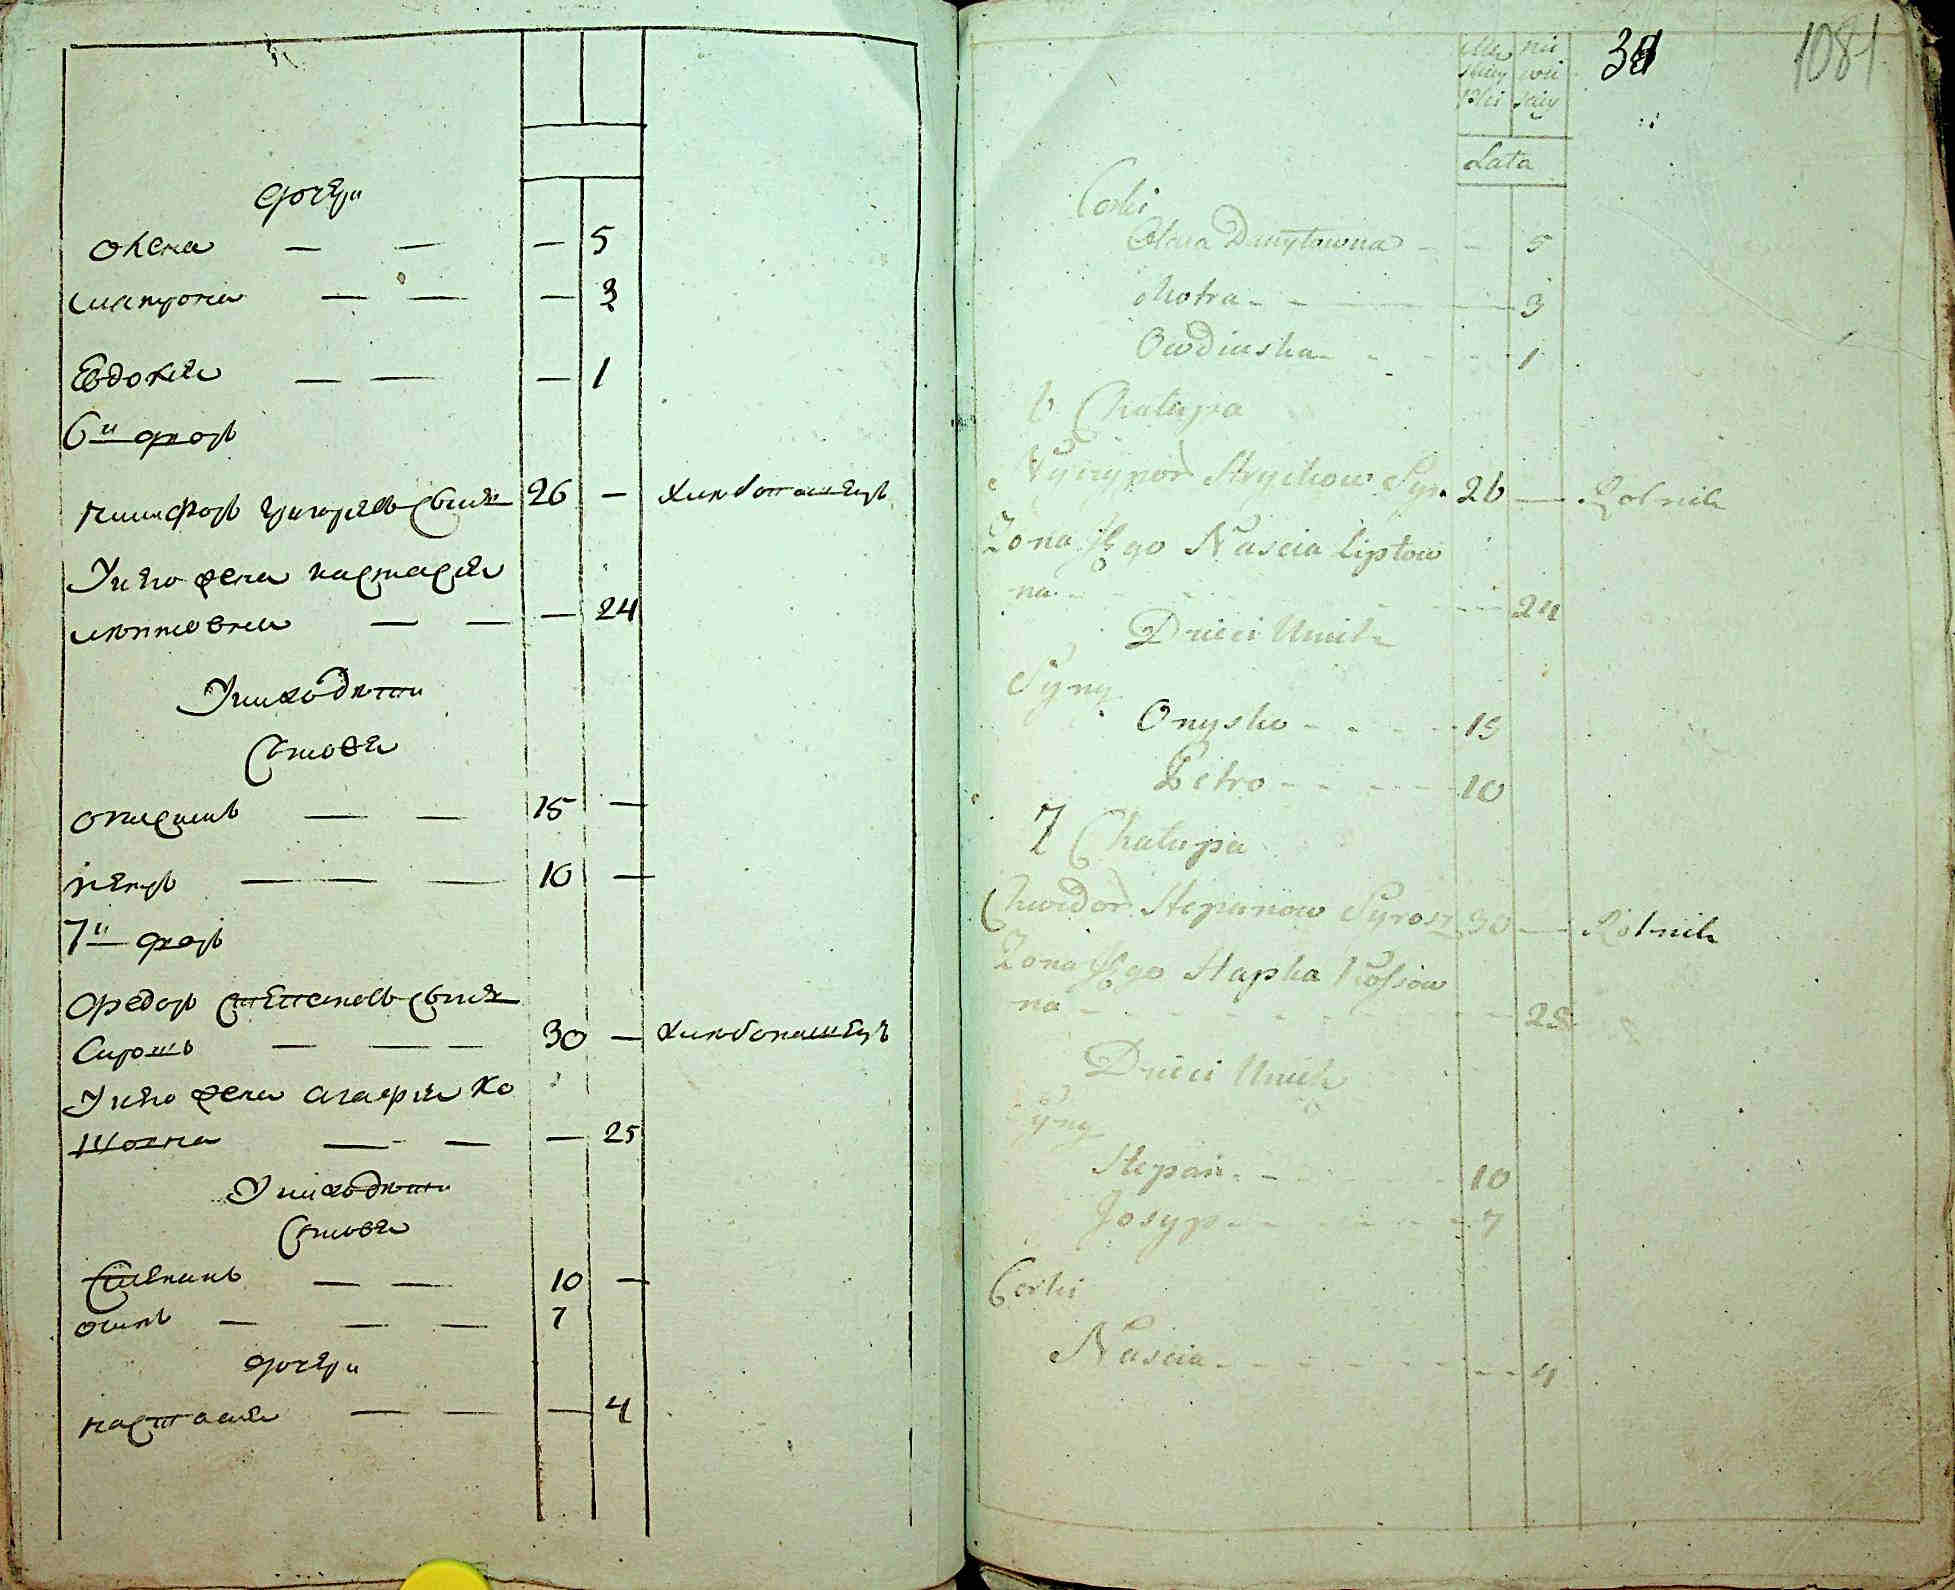 дочери
олена — — — 5
матрона — — — 3
Евдокия — — — 1
6й двор
никифор григорев сын 26 — хлебопашец
У него жена настасия
— — — 24
У них дети
Сынове
онисим — — 15 —
петр — — — 10 —
7й двор
Федор степанов сын
Сирош — — — 30 — хлебопашец
У него жена агафия Ко
шовна — — — 25
У них дети
Сынове
Степан — — 10 —
осип — — — 7
дочери
настасия — — — 4
34 1081
Lata
Corki
Danyłowna - - 5
Motra - - - 3
Owdiuska - - - 1
6 Chałupa
Nyczypor Hryckow Syn 26 — Rolnik
Żona Jego Nascia Liptow
na - - - 24
Dzieci Umich
Syny
Onysko - - - 15
Petro - - - 10
7 Chałupa
Chwedor Stepanow Syrosz 30 — Rolnik
Żona Jego Hapka Koszow
na - - - 25
Dzieci Umich
Syny
Stepan - - - 10
Josyp - - - 7
Corki
Nascia - - - 4